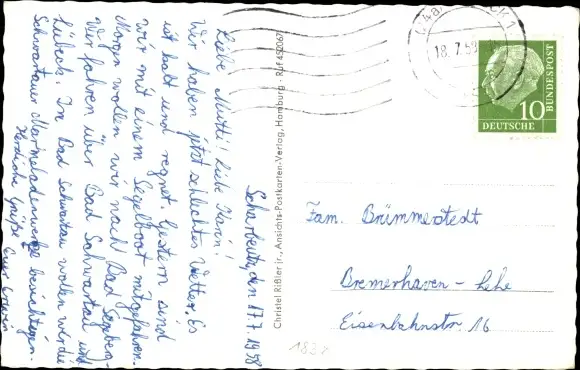 Scharbeutz, den 17.7.1958
Liebe Mutti! Liebe Karin!
Wir haben jetzt schlechtes Wetter. Es
ist kalt und regnet. Gestern sind
wir mit einem Segelboot mitgefahren.
Morgen wollen wir nach Bad Segeberg.
Wir fahren über Bad Schwartau und
Lübeck. In Bad Schwartau wollen wir die
Schwartauer Marmeladenwerke besichtigen.
Herzliche Grüße
Euer
Christel Rißler jr., Ansichts-Postkarten-Verlag, Hamburg · Ruf 452067
18.7.58
10
DEUTSCHE
BUNDESPOST
Fam. Brümmerstedt
Bremerhaven - Lehe
Eisenbahnstr. 16
1837